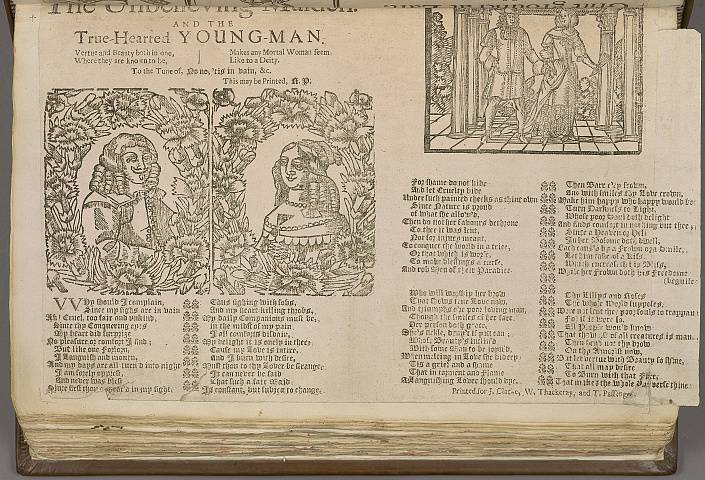 The Unbelieving Maiden.
AND THE
True-Hearted YOUNG-MAN.
Vertue and Beauty both in one,
Where they are known to be,
Makes any Mortal Woman seem
Like to a Deity.
To the Tune of, No no, 'tis in vain, &c.
This may be Printed, R. P.
WHy should I complain,
Since my sighs are in vain
Ah! Cruel, too fair and unkind,
Since thy Conquering eyes
My heart did surprize
No pleasure or comfort I find:
But like one Forlorn,
I languish and mourn,
And my days are all turn'd into night
I am sorely opprest,
And never was blest
Since first thou appear'd in my sight.
Thus sighing with sobs,
And my heart-killing throbs,
My daily Companions must be,
in the midst of my pain
All comforts disdain,
My delight it is onely in thee;
Cause my Love is intire,
And I burn with desire,
Must thou to thy Lover be strange.
It can never be said
That such a fair Maid
Is constant, but subject to change.
For shame do not hide
And let Cruelty bide
Under such painted cheeks as thine own
Since Nature is proud
of what she allow'd,
Then do not her favours dethrone
To thee it was lent,
Not for injury meant,
To conquer the world in a trice,
Or that which is worse,
To make blessings a curse,
And rob Men of their Paradice
Who will worship her brow
That Frowns true Love now,
And triumphs o're poor loving man,
Though the smiles of her face
Her person doth grace,
She's fickle, deny't if you can:
Whose Beauty's inclin'd
With some Man to be joyn'd,
When melting in Love she did cry,
'Tis a grief and a shame
That in torment and Flame
A languishing Lover should dye.
Then Ware thy frown,
And with smiles thy Love crown,
Make him happy who happy would be:
Turn Darkness to Light,
Whose poor Soul doth delight
And finds comfort in nothing but thee;
Since a Heaven or Hell
In her Bosome doth dwell,
Each caus'd by a Frown or a Smile,
Let him take of a Kiss
Which encreaseth his Bliss,
While her Frown doth his Freedome
(beguile
Thy Lillys and Roses
The whole World supposes,
Were not lent thee, poor souls to trappan:
For if it were so,
All People wou'd know
That the
of all creatures is man.
Then
not thy brow
On the Amorist now,
But let vertue with Beauty so shine,
That all may desire
To Burn with that Fire,
That makes the whole Universe thine
Printed for J. Clarke, W. Thackeray, and T. Passenger.